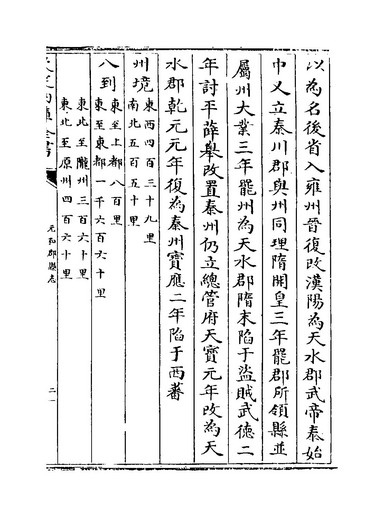 以為名後省入雍州晉復改漢陽為天水郡武帝泰始
中又立秦川郡與州同理隋開皇三年罷郡所領縣並
屬州大業三年罷州為天水郡隋末陷于盜賊武德二
年討平薛舉改置秦州仍立總管府天寶元年改為天
水郡乾元元年復為秦州寶應二年陷于西蕃
州境東西四百三十九里
南北五百五十里
八到東至上都八百里
東至東都一千六百六十里
東北至隴州三百六十里
東北至原州四百六十里
元和郡縣志
二一